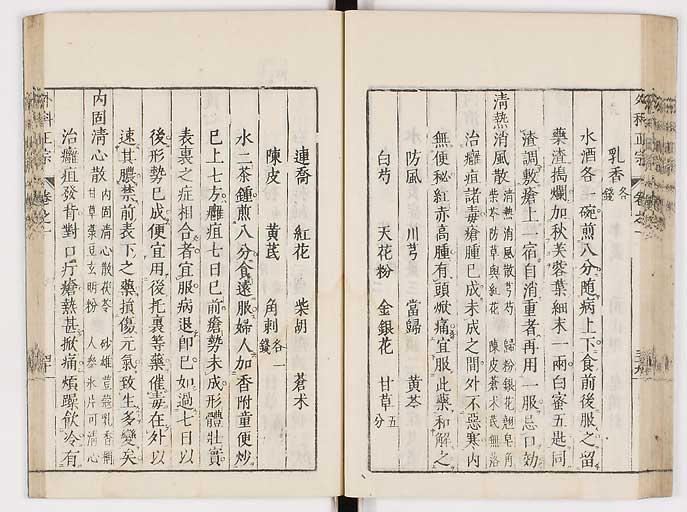 乳香各一錢
水酒各一碗煎八分随病上下食前後服之留
藥渣搗爛加秋芙蓉葉細末一兩白蜜五匙同
渣調敷瘡上一宿自消重者再用一服忌口効
清熱消風散 清熱消風散芎芍 歸粉銀花翹皂角
柴芩防草與紅花 陳皮蒼术芪無落
治癰疽諸毒瘡腫已成未成之間外不惡寒内
無便秘紅赤高腫有頭焮痛宜服此藥和解之
防風 川芎 當歸 黃芩
白芍 天花粉 金銀花 甘草五分
連喬 紅花 柴胡 蒼术
陳皮 黃芪 角刺各一錢
水二茶鍾煎八分食遠服婦人加香附童便炒
已上七方癰疽七日已前瘡勢未成形體壯實
表裏之症相合者宜服病退即已如過七日以
後形勢已成便宜用後托裏等藥催毒在外以
速其膿禁前表下之藥損傷元氣致生多變矣
内固清心散 内固清心散茯苓 砂雄荳蔻乳香
甘草菉豆玄明粉 人參氷片可清心
治癰疽發背對口疔瘡熱甚焮痛煩躁飲冷有
外科正宗
卷之一